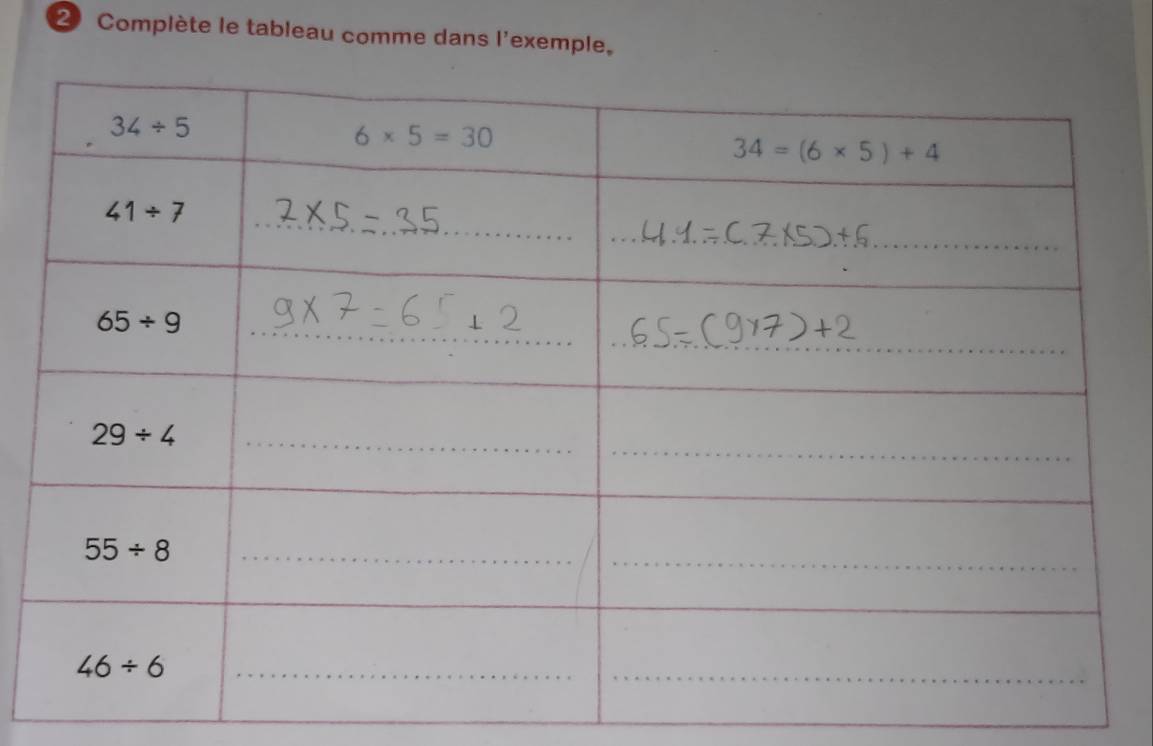 2 Complète le tableau comme dans l'exemple.
34 ÷ 5 6 × 5 = 30 34 = (6 × 5) + 4
41 ÷ 7 7 × 5 = 35 41 = (7 × 5) + 6
65 ÷ 9 9 × 7 = 65 + 2 65 = (9 × 7) + 2
29 ÷ 4
55 ÷ 8
46 ÷ 6